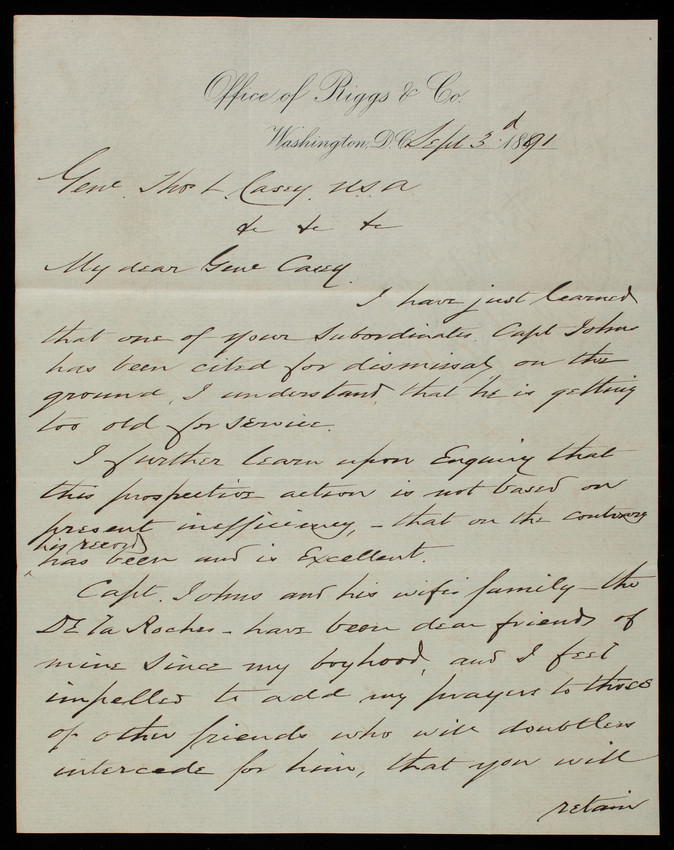 Office of Riggs & Co.
Washington, D.C. Sept 3d 1891
Genl. Thos L. Casey. U.S.A.
&c &c &c
My dear Genl Casey.
I have just learned
that one of your subordinates. Capt Johns
has been cited for dismissal, on the
ground, I understand, that he is getting
too old for service.
I further learn upon Enquiry that
this prospective action is not based on
present inefficiency, - that on the contrary
his record
has been and is Excellent.
Capt. Johns and his wife's family - the
De La Roches - have been dear friends of
mine since my boyhood, and I feel
impelled to add my prayers to those
of other friends who will doubtless
intercede for him, that you will
retain